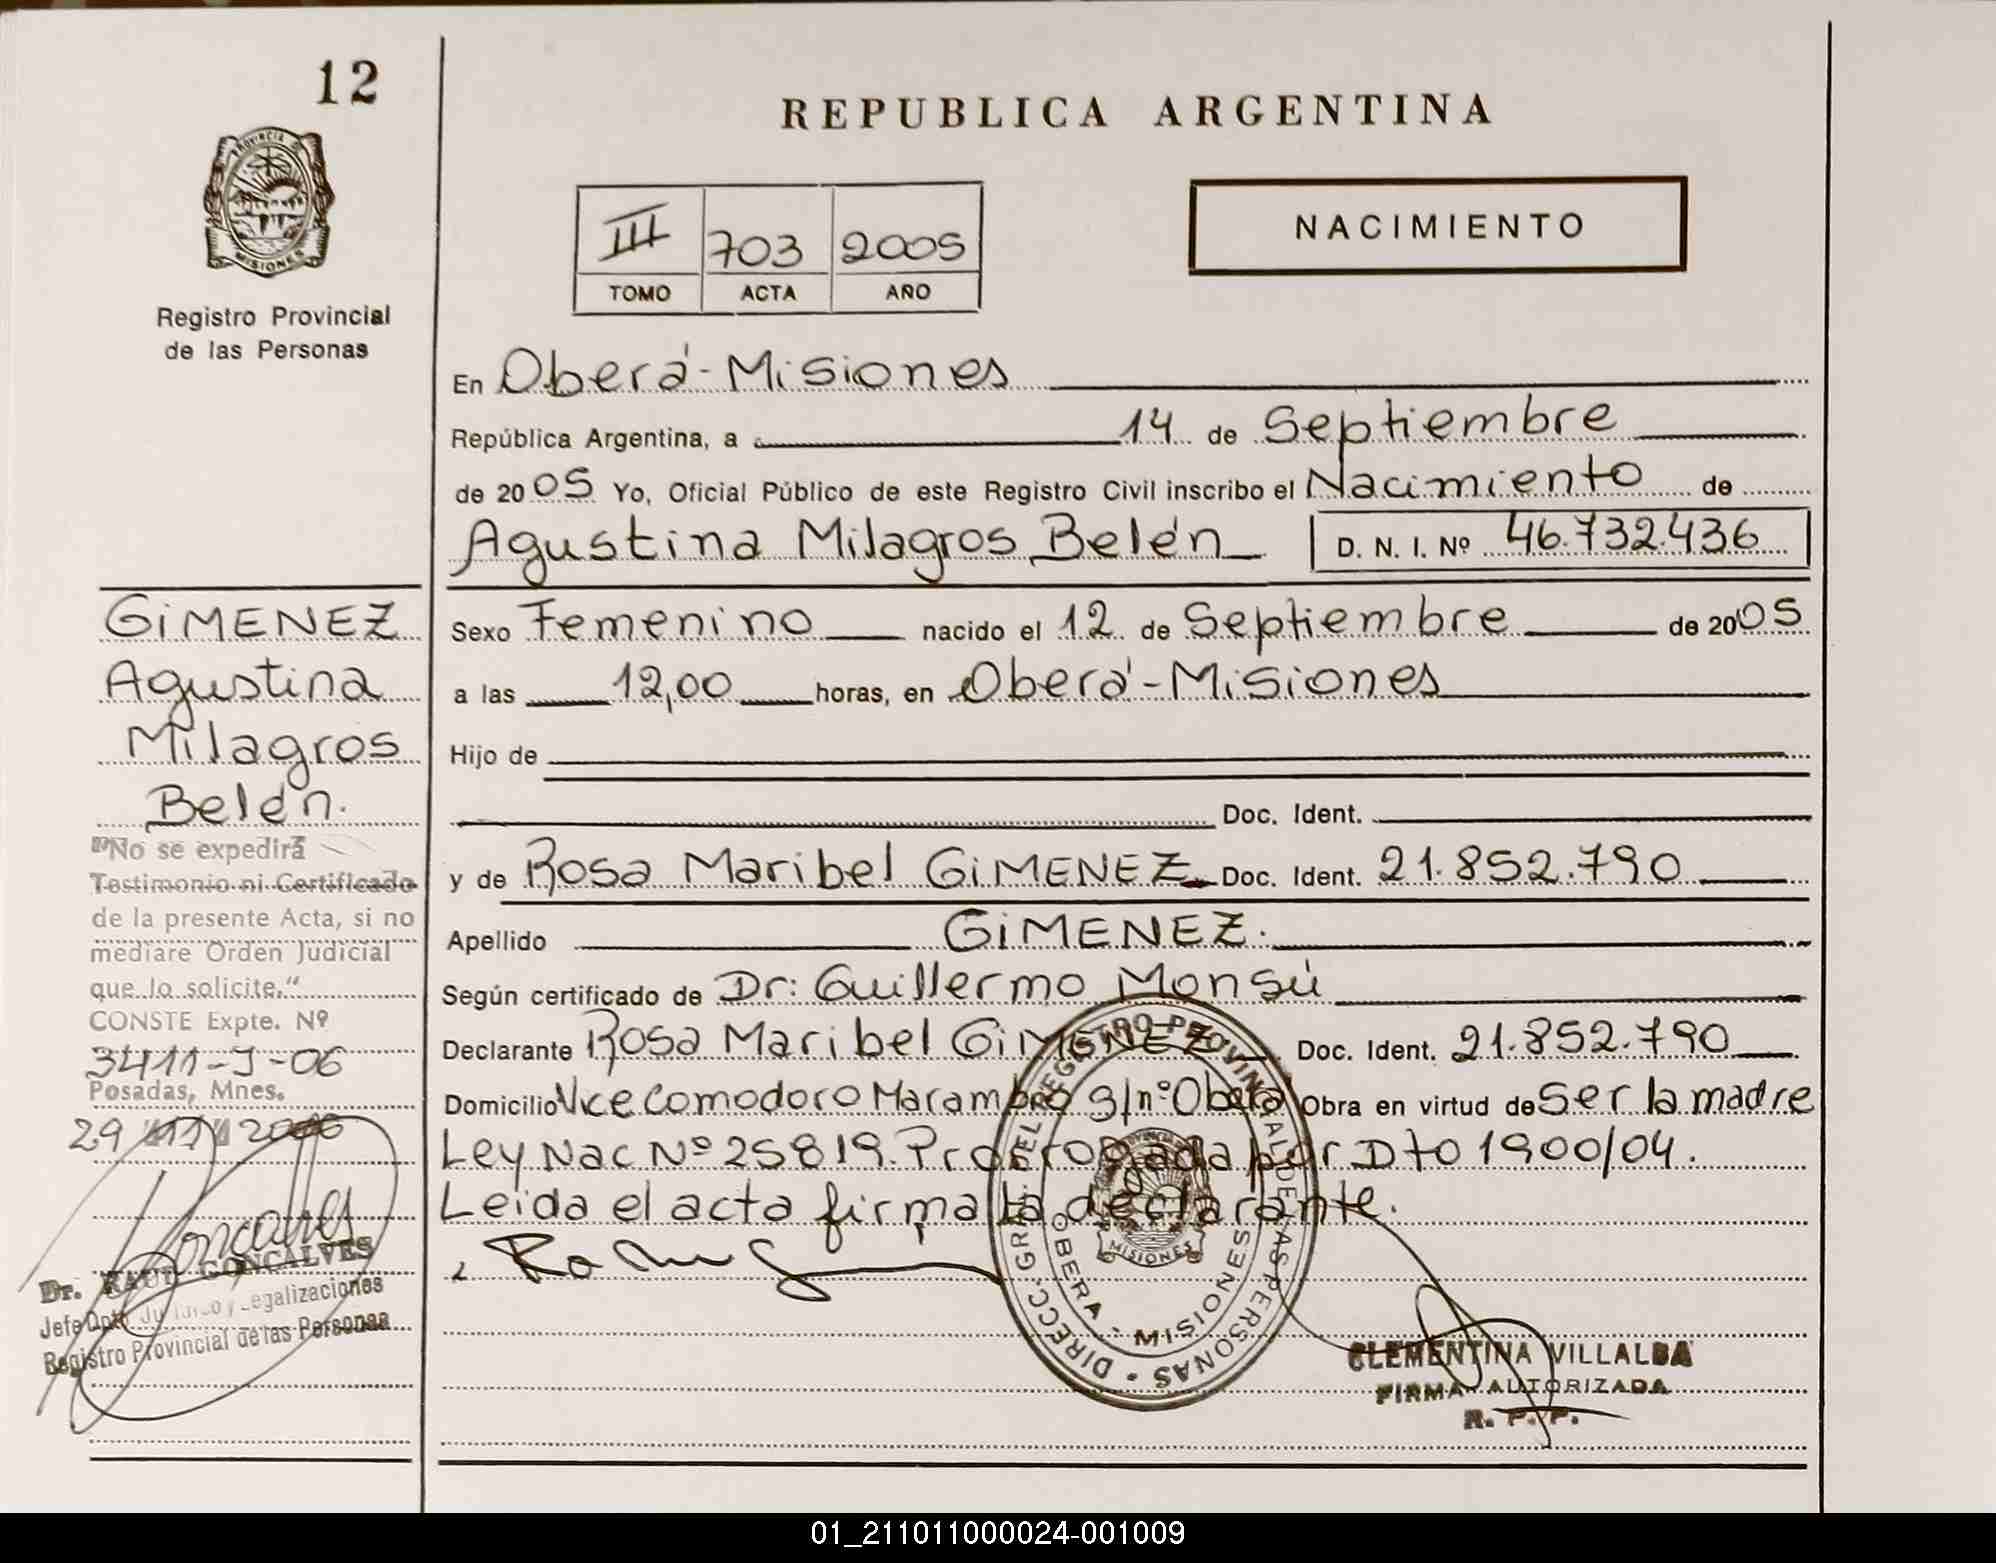 12
REPUBLICA ARGENTINA
PROVINCIA DE
MISIONES
Registro Provincial
de las Personas
III 703 2005
TOMO ACTA AÑO
NACIMIENTO
En Oberá - Misiones
República Argentina, a 14 de Septiembre
de 2005 Yo, Oficial Público de este Registro Civil inscribo el Nacimiento de
Agustina Milagros Belén D. N. I. Nº 46.732.436
GiMENEZ
Agustina
Milagros
Belén.
Sexo Femenino nacido el 12 de Septiembre de 2005
a las 12,00 horas, en Oberá - Misiones
Hijo de
Doc. Ident.
y de Rosa Maribel GiMENEZ Doc. Ident. 21.852.790
Apellido GiMENEZ.
Según certificado de Dr: Guillermo Monsú
Declarante Rosa Maribel GiMENEZ Doc. Ident. 21.852.790
Domicilio Vice Comodoro Marambio S/nº Oberá Obra en virtud de Ser la madre
Ley Nac Nº 25819. Prorrogada por Dto 1900/04.
Leida el acta firma la declarante.
"No se expedirá
Testimonio ni Certificado
de la presente Acta, si no
mediare Orden Judicial
que lo solicite."
CONSTE Expte. Nº
3411-J-06
Posadas, Mnes.
29 11 2006
Dr. RAUL GONCALVES
Jefe Dpto. Jurídico y Legalizaciones
Registro Provincial de las Personas
DIRECC. GRAL. DEL REGISTRO PROVINCIAL DE LAS PERSONAS
OBERA - MISIONES
MISIONES
CLEMENTINA VILLALBA
FIRMA AUTORIZADA
R. P. P.
01_211011000024-001009